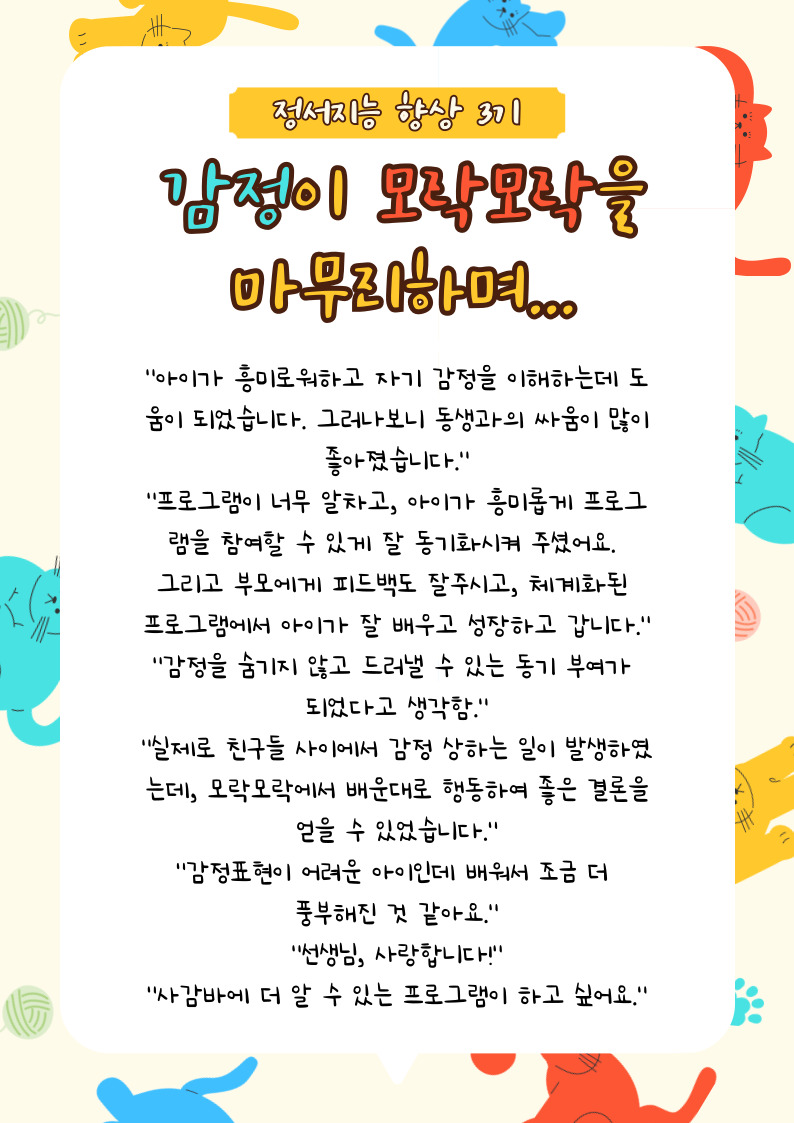 정서지능 향상 3기
감정이 모락모락을
마무리하며...
"아이가 흥미로워하고 자기 감정을 이해하는데 도
움이 되었습니다. 그러나보니 동생과의 싸움이 많이
좋아졌습니다."
"프로그램이 너무 알차고, 아이가 흥미롭게 프로그
램을 참여할 수 있게 잘 동기화시켜 주셨어요.
그리고 부모에게 피드백도 잘주시고, 체계화된
프로그램에서 아이가 잘 배우고 성장하고 갑니다."
"감정을 숨기지 않고 드러낼 수 있는 동기 부여가
되었다고 생각함."
"실제로 친구들 사이에서 감정 상하는 일이 발생하였
는데, 모락모락에서 배운대로 행동하여 좋은 결론을
얻을 수 있었습니다."
"감정표현이 어려운 아이인데 배워서 조금 더
풍부해진 것 같아요."
"선생님, 사랑합니다!"
"사감바에 더 알 수 있는 프로그램이 하고 싶어요."